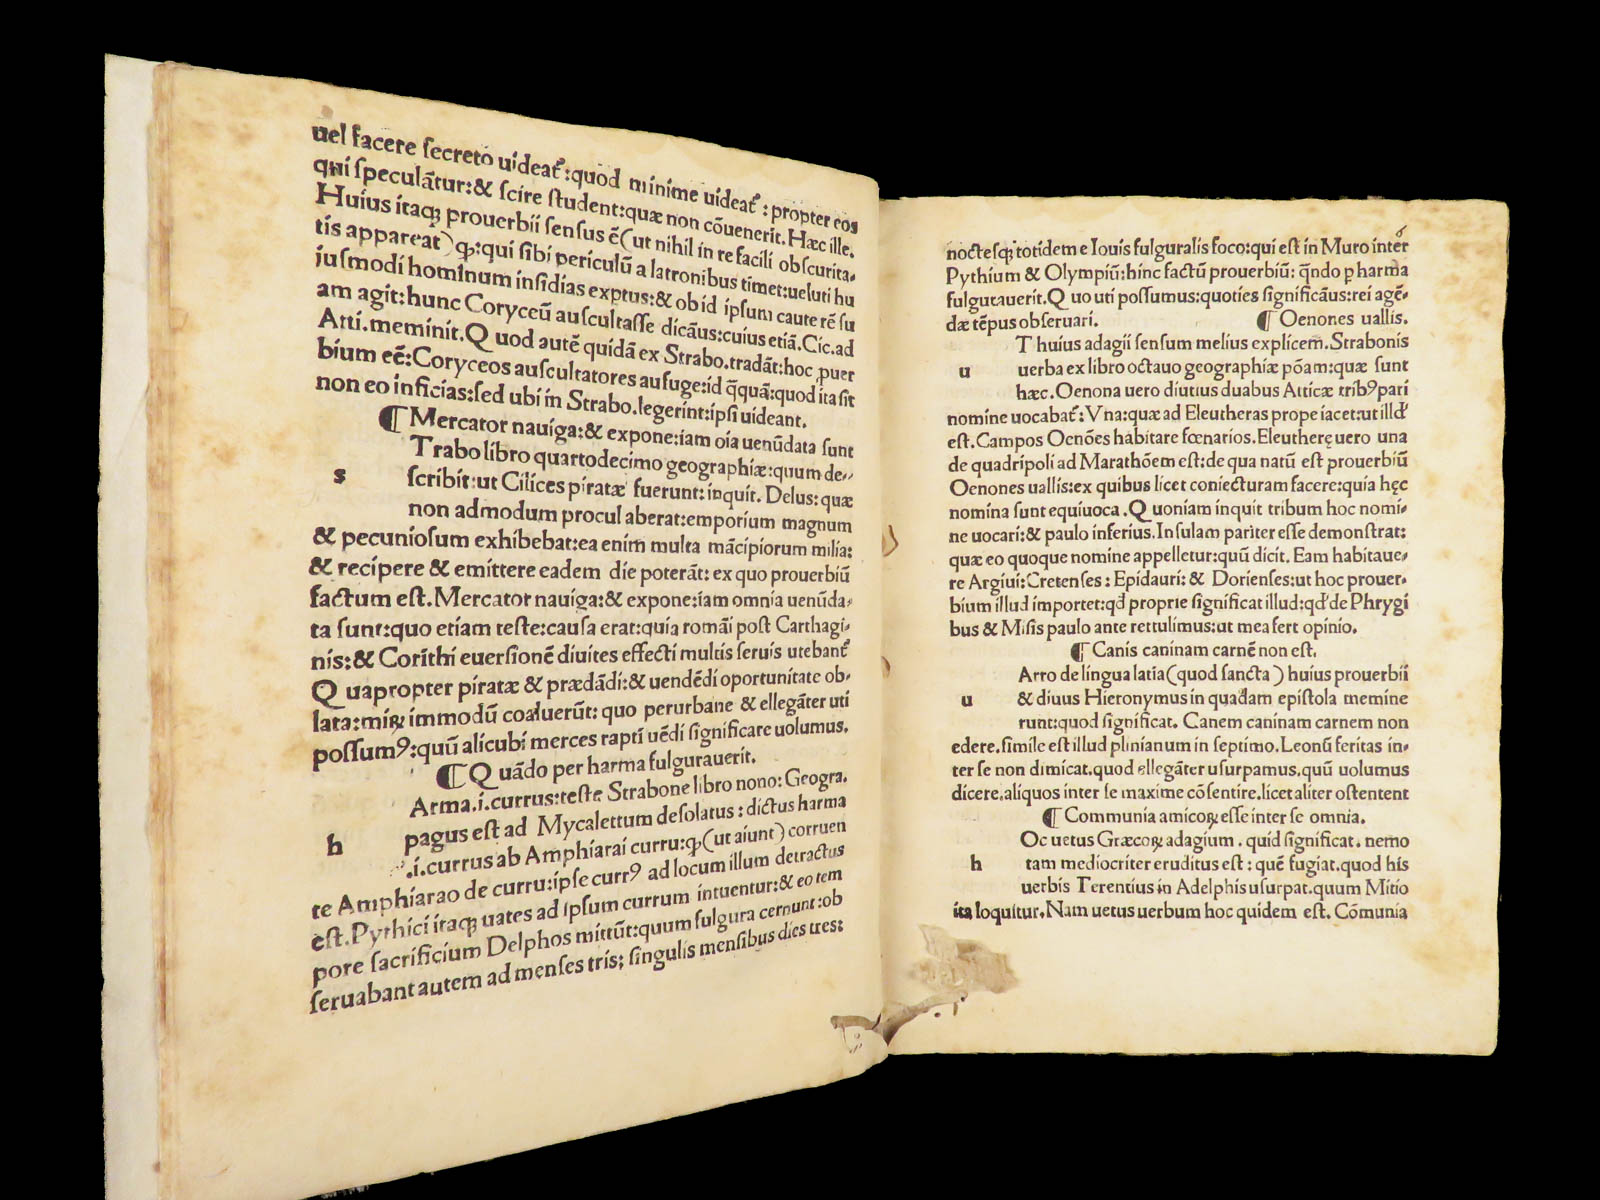 uel facere ſecreto uideat᷑:quod minime uideat᷑: propter eos
qui ſpeculãtur:& ſcire ſtudent:quæ non cõuenerit. Hæc ille.
Huius itaqꝫ prouerbii ſenſus ẽ(ut nihil in re facili obſcurita-
tis appareat) ꝙ:qui ſibi periculũ a latronibus timet:ueluti hu
iuſmodi hominum inſidias exptus:& ob id ipſum caute rẽ ſu
am agit:hunc Coryceũ auſcultaſſe dicãus:cuius etiã.Cic.ad
Atti.meminit.Quod autẽ quidã ex Strabo.tradãt:hoc ꝓuer
bium eẽ:Coryceos auſcultatores aufuge:id q̃quã:quod ita ſit
non eo inficias:ſed ubi in Strabo.legerint:ipſi uideant.
¶ Mercator nauiga:& expone:iam oía uenũdata ſunt
Trabo libro quartodecimo geographiæ:quum de-
s ſcribit:ut Cilices piratæ fuerunt:inquit. Delus:quæ
non admodum procul aberat:emporium magnum
& pecuniofum exhibebat:ea enim multa mãcipiorum milia:
& recipere & emittere eadem die poterãt: ex quo prouerbiũ
factum eſt.Mercator nauiga:& expone:iam omnia uenũda-
ta ſunt:quo etiam teſte:cauſa erat:quia romãi poſt Carthagi-
nis:& Corithi euerſionẽ diuites effecti multis ſeruis utebant᷑
Quapropter piratæ & prædãdi:& uendẽdi oportunitate ob-
lata:miꝝ immodũ coaluerũt: quo perurbane & ellegãter uti
poſſumꝰ:quũ alicubi merces rapti uẽdi ſignificare uolumus.
¶ Quãdo per harma fulgurauerit.
Arma.i.currus:teſte Strabone libro nono: Geogra.
h pagus eſt ad Mycalettum deſolatus: dictus harma
.i.currus ab Amphiarai curru:ꝙ(ut aiunt) corruen
te Amphiarao de curru:ipſe currꝰ ad locum illum detractus
eſt.Pythici itaqꝫ uates ad ipſum currum intuentur:& eo tem
pore ſacrificium Delphos mittũt:quum fulgura cernunt:ob
ſeruabant autem ad menſes tris; ſingulis menſibus dies tres:
6
nocteſqꝫ totidem e Iouis fulguralis foco:qui eſt in Muro inter
Pythium & Olympiũ:hinc factũ prouerbiũ: q̃ndo ꝑ harma
fulgurauerit.Quo uti poſſumus:quoties ſignificãus:rei agẽ-
dæ tẽpus obſeruari. ¶ Oenones uallis.
T huius adagii ſenſum melius explicem.Strabonis
u uerba ex libro octauo geographiæ põam:quæ ſunt
hæc.Oenona uero diutius duabus Atticæ tribꝰ pari
nomine uocabat᷑: Vna:quæ ad Eleutheras prope iacet:ut illd'
eſt.Campos Oenões habitare fœnarios.Eleutherę uero una
de quadripoli ad Marathõem eſt:de qua natũ eſt prouerbiũ
Oenones uallis:ex quibus licet coniecturam facere:quia hęc
nomina ſunt equiuoca.Quoniam inquit tribum hoc nomi-
ne uocari:& paulo inferius.Inſulam pariter eſſe demonſtrat:
quæ eo quoque nomine appelletur:quũ dicit. Eam habitaue-
re Argiui:Cretenſes: Epidauri: & Dorienſes:ut hoc prouer-
bium illud importet:qd' proprie ſignificat illud:qd' de Phrygi
bus & Miſis paulo ante rettulimus:ut mea fert opinio.
¶ Canis caninam carnẽ non eſt.
Arro de lingua latia(quod ſancta) huius prouerbii
u & diuus Hieronymus in quadam epiſtola memine
runt:quod ſignificat. Canem caninam carnem non
edere.ſimile eſt illud plinianum in ſeptimo.Leonũ feritas in-
ter ſe non dimicat.quod ellegãter uſurpamus.quũ uolumus
dicere.aliquos inter ſe maxime cõſentire.licet aliter oſtentent
¶ Communia amicoꝝ eſſe inter ſe omnia.
Oc uetus Græcoꝝ adagium. quid ſignificat. nemo
h tam mediocriter eruditus eſt: quẽ fugiat.quod his
uerbis Terentius in Adelphis uſurpat.quum Mitio
ita loquitur.Nam uetus uerbum hoc quidem eſt. Cõmunia